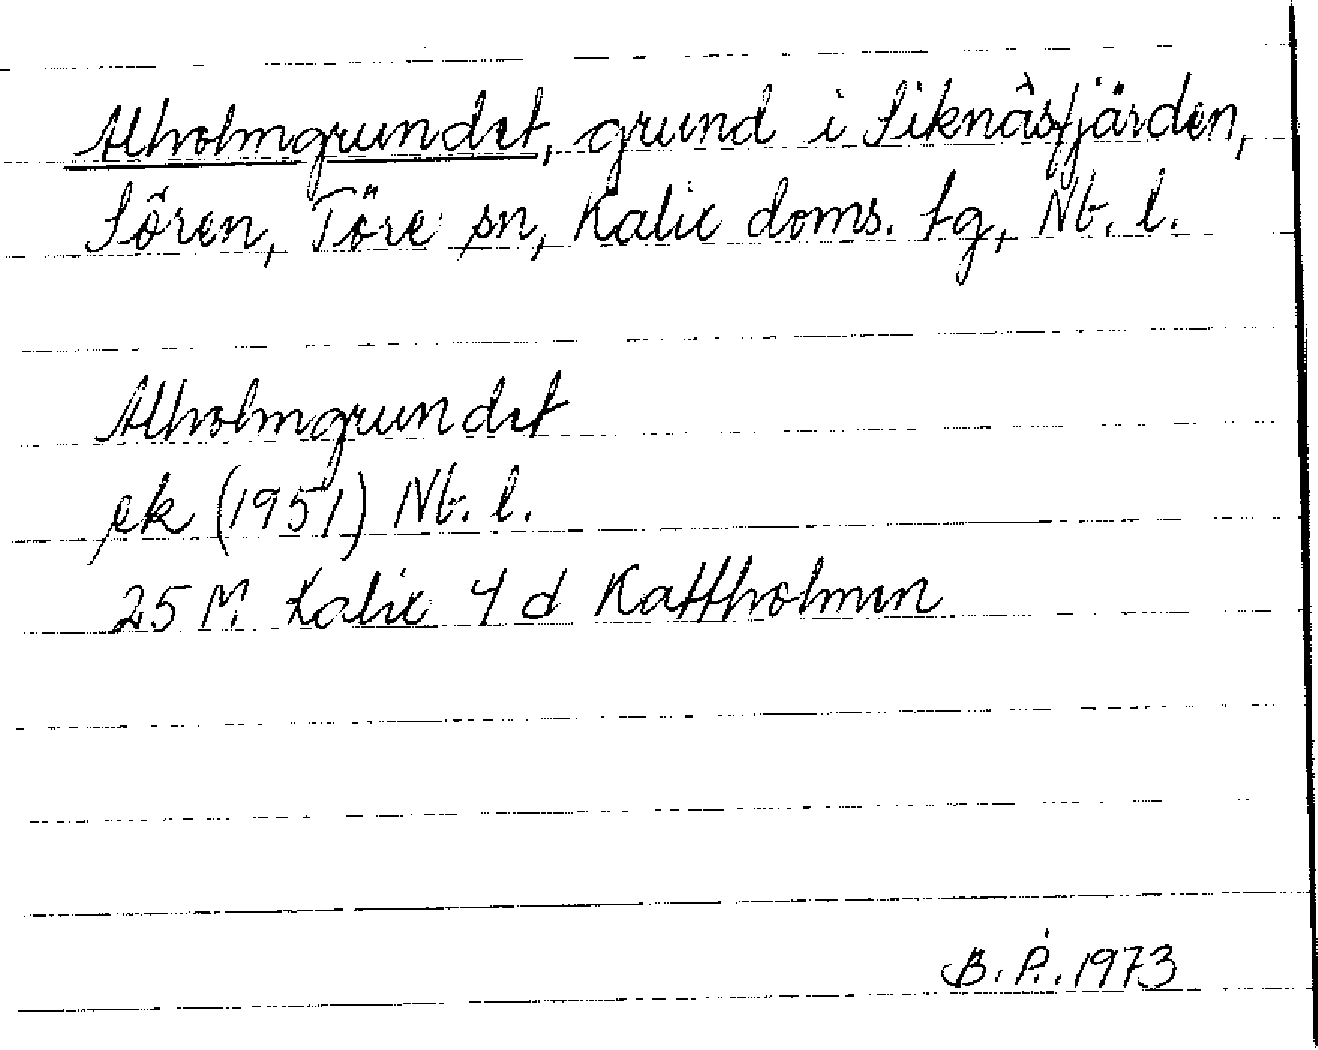 Alholmgrundet, grund i Siknäsfjärden,
Sören, Töre sn, Kalix doms. tg, Nb. l.
Alholmgrundet
ek (1951) Nb. l.
25 M Kalix 4 d Kattholmen
B. P. 1973